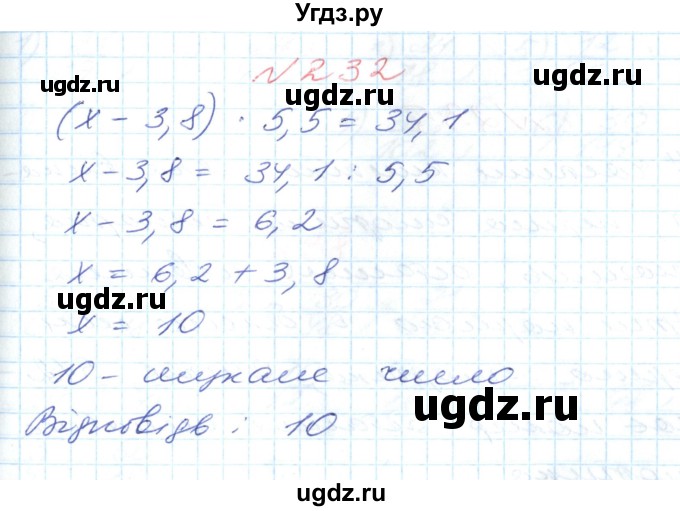 Угдз.ру
ugdz.ru ugdz.ru
№ 232
(х - 3,8) · 5,5 = 34,1
х - 3,8 = 34,1 : 5,5
ugdz.ru
х - 3,8 = 6,2
х = 6,2 + 3,8
ugdz.ru ugdz.ru
х = 10
10 - шукане число
ugdz.ru
Відповідь : 10
ugdz.ru
ugdz.ru